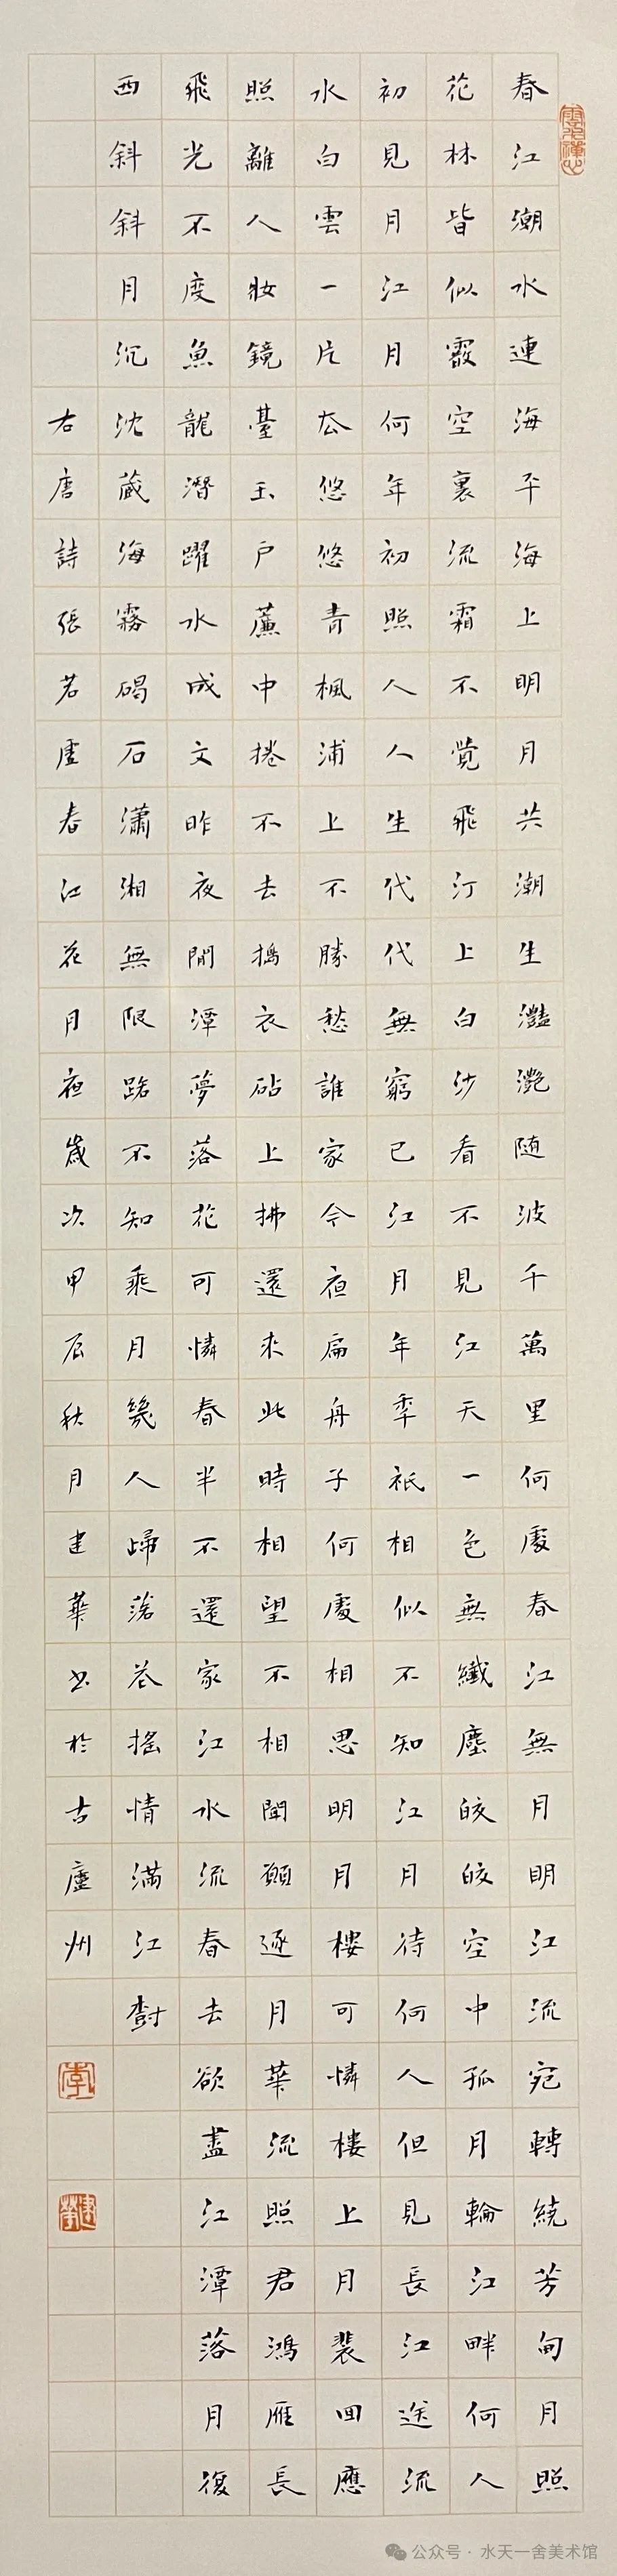 春江潮水連海平海上明月共潮生灩灔随波千萬里何處春江無月明江流宛轉繞芳甸月照
花林皆似霰空裏流霜不覺飛汀上白沙看不見江天一色無纖塵皎皎空中孤月輪江畔何人
初見月江月何年初照人人生代代無窮已江月年年祇相似不知江月待何人但見長江送流
水白雲一片去悠悠青楓浦上不勝愁誰家今夜扁舟子何處相思明月樓可憐樓上月裴回應
照離人妝鏡臺玉戶簾中捲不去搗衣砧上拂還來此時相望不相聞願逐月華流照君鴻雁長
飛光不度魚龍潛躍水成文昨夜閒潭夢落花可憐春半不還家江水流春去欲盡江潭落月復
西斜斜月沉沈藏海霧碣石瀟湘無限路不知乘月幾人歸落花搖情滿江樹
右唐詩張若虛春江花月夜歲次甲辰秋月建華書於古廬州
李
建華
公众号·水天一舍美术馆